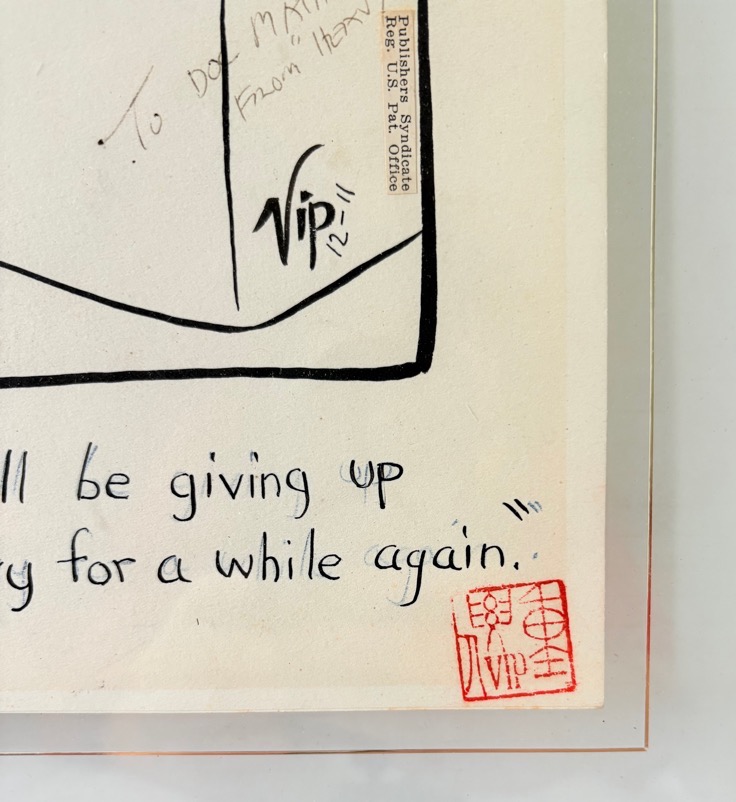 To DOC
FROM
Publishers Syndicate
Reg. U.S. Pat. Office
Vip
12-11
ll be giving up
y for a while again."
VIP